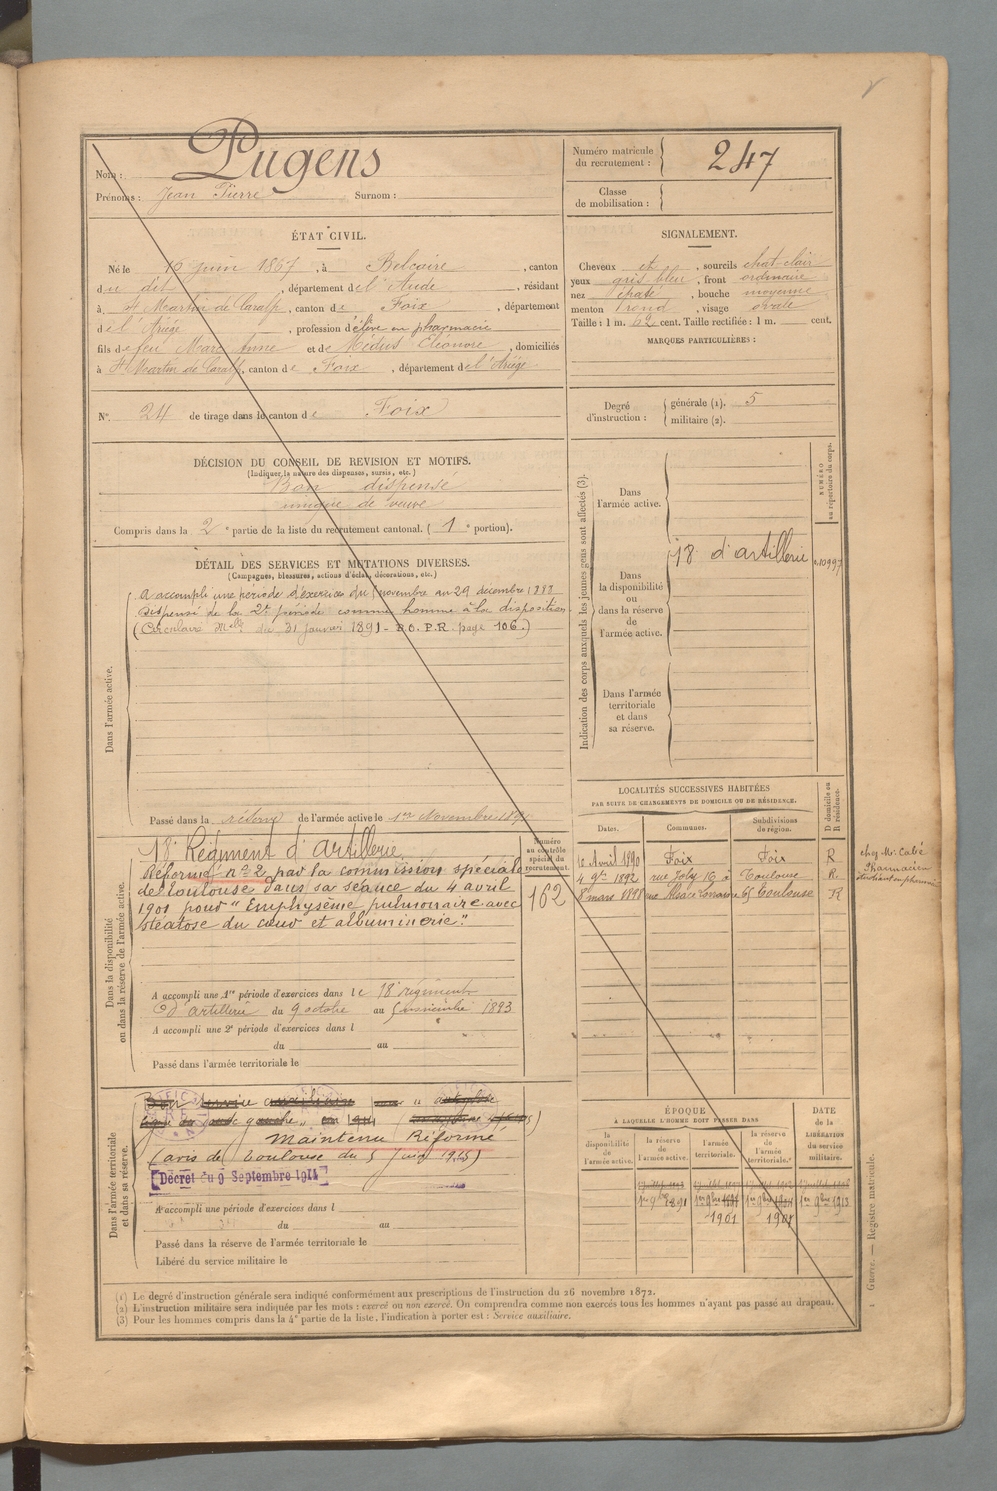 Nom : Pugens
Prénoms : Jean Pierre Surnom :
Numéro matricule du recrutement : 247
Classe de mobilisation :
ÉTAT CIVIL.
Né le 16 juin 1867, à Belcaire, canton
du dit, département de l'Aude, résidant
à St Martin de Caralp, canton de Foix, département
de l'Ariège, profession d'élève en pharmacie
fils de feu Marc Anne et de Médus Eléonore, domiciliés
à St Martin de Caralp, canton de Foix, département de l'Ariège
N° 24 de tirage dans le canton de Foix
SIGNALEMENT.
Cheveux et, sourcils chat-clair
yeux gris bleu, front ordinaire
nez épaté, bouche moyenne
menton rond, visage ovale
Taille : 1 m. 62 cent. Taille rectifiée : 1 m. cent.
MARQUES PARTICULIÈRES :
Degré d'instruction : générale (1). 5
militaire (2).
DÉCISION DU CONSEIL DE REVISION ET MOTIFS.
(Indiquer la nature des dispenses, sursis, etc.)
Bon dispensé
unique de veuve
Compris dans la 2e partie de la liste du recrutement cantonal. (1e portion).
DÉTAIL DES SERVICES ET MUTATIONS DIVERSES.
(Campagnes, blessures, actions d'éclat, décorations, etc.)
Dans l'armée active.
A accompli une période d'exercices du 1 novembre au 29 décembre 1888
Dispensé de la 2e période comme homme à la disposition
(Circulaire Mlle du 31 janvier 1891 - B.O. P.R. page 106.)
Passé dans la réserve de l'armée active le 1er Novembre
Indication des corps auxquels les jeunes gens sont affectés (3).
NUMÉRO au répertoire du corps.
Dans l'armée active.
Dans la disponibilité ou dans la réserve de l'armée active.
18e d'artillerie
10997
Dans l'armée territoriale et dans sa réserve.
Dans la disponibilité ou dans la réserve de l'armée active.
Numéro au contrôle spécial du recrutement.
162
18e Régiment d'Artillerie
Réformé n° 2 par la commission spéciale
de Toulouse dans sa séance du 4 avril
1901 pour "Emphysème pulmonaire avec
stéatose du cœur et albuminerie."
A accompli une 1re période d'exercices dans le 18e régiment
d'artillerie du 9 octobre au 5 novembre 1893
A accompli une 2e période d'exercices dans l
du au
Passé dans l'armée territoriale le
LOCALITÉS SUCCESSIVES HABITÉES
PAR SUITE DE CHANGEMENTS DE DOMICILE OU DE RÉSIDENCE.
Dates. Communes. Subdivisions de région. D domicile ou R résidence.
Avril 1890 Foix Foix R
4 9bre 1892 rue Joly 16 à Toulouse R.
8 mars 1898 rue Alsace Lorraine 65 Toulouse R
chez Mr Calvé
Pharmacien
étudiant en pharmacie
Dans l'armée territoriale et dans sa réserve.
Bon service auxiliaire
gauche
Maintenu Réformé
(avis de Toulouse du 5 juin 1915)
Décret du 9 Septembre 1914
A accompli une période d'exercices dans l
du au
Passé dans la réserve de l'armée territoriale le
Libéré du service militaire le
ÉPOQUE
À LAQUELLE L'HOMME DOIT PASSER DANS
DATE de la LIBÉRATION du service militaire.
la disponibilité de l'armée active. la réserve de l'armée active. l'armée territoriale. la réserve de l'armée territoriale.
1er 9bre 1891 1er 9bre 1er 9bre 1er 9bre 1913
1901 1907
(1) Le degré d'instruction générale sera indiqué conformément aux prescriptions de l'instruction du 26 novembre 1872.
(2) L'instruction militaire sera indiquée par les mots : exercé ou non exercé. On comprendra comme non exercés tous les hommes n'ayant pas passé au drapeau.
(3) Pour les hommes compris dans la 4e partie de la liste, l'indication à porter est : Service auxiliaire.
1 Guerre. — Registre matricule.